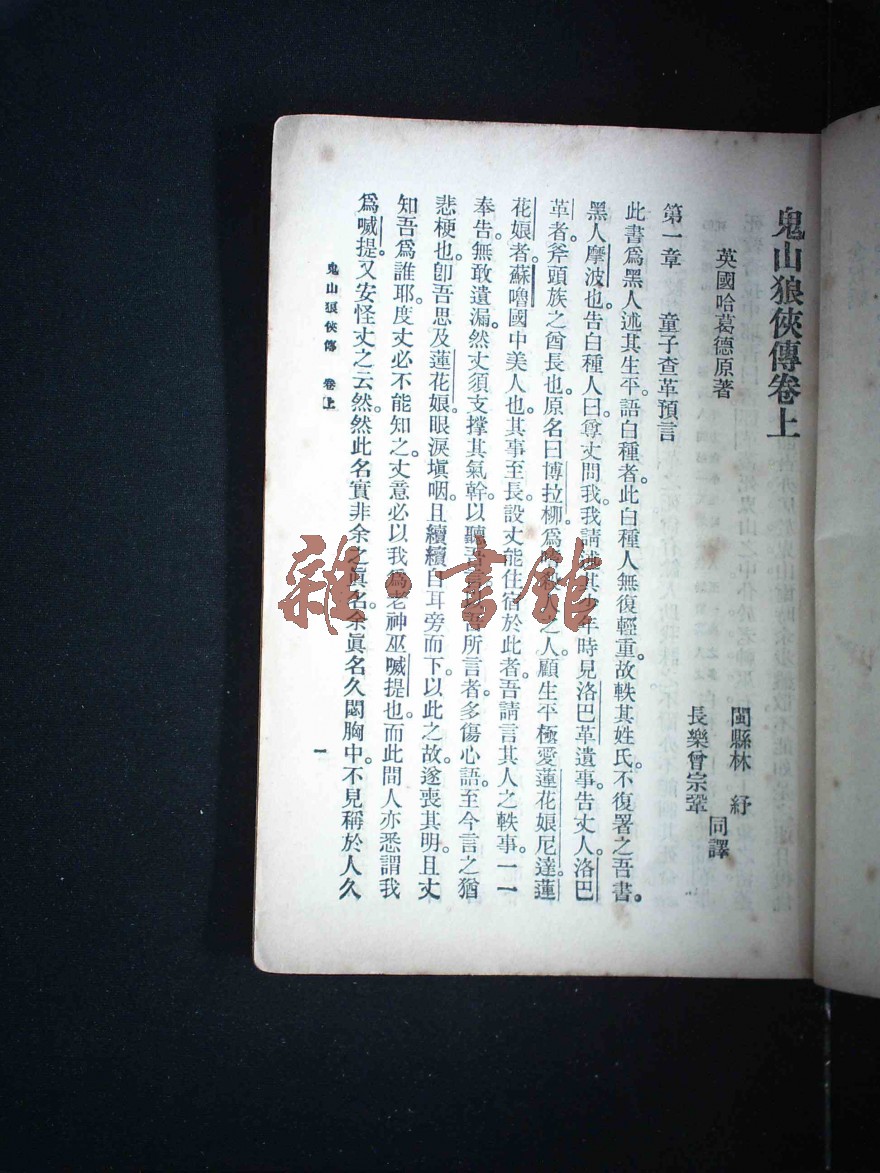 鬼山狼俠傳卷上
英國哈葛德原著
閩縣林　紓
同譯
長樂曾宗鞏
第一章　童子查革預言
此書爲黑人述其生平語白種者。此白種人無復輕重。故軼其姓氏。不復署之吾書。
黑人摩波也。告白種人曰。尊丈問我。我請述其少年時見洛巴革遺事。告丈人。洛巴
革者。斧頭族之酋長也。原名曰博拉柳。爲人之人。顧生平極愛蓮花娘尼達。蓮
花娘者。蘇嚕國中美人也。其事至長。設丈能住宿於此者。吾請言其人之軼事。一一
奉告。無敢遺漏。然丈須支撐其氣幹。以聽吾言。吾所言者。多傷心語。至今言之。猶
悲梗也。卽吾思及蓮花娘。眼淚塡咽。且續續自耳旁而下。以此之故。遂喪其明。且丈
知吾爲誰耶。度丈必不能知之。丈意必以我爲老神巫喊提也。而此間人亦悉謂我
爲喊提。又安怪丈之云然。然此名實非余之眞名。余眞名久閟胸中。不見稱於人久
鬼山狼俠傳　卷上
一
雜·書館